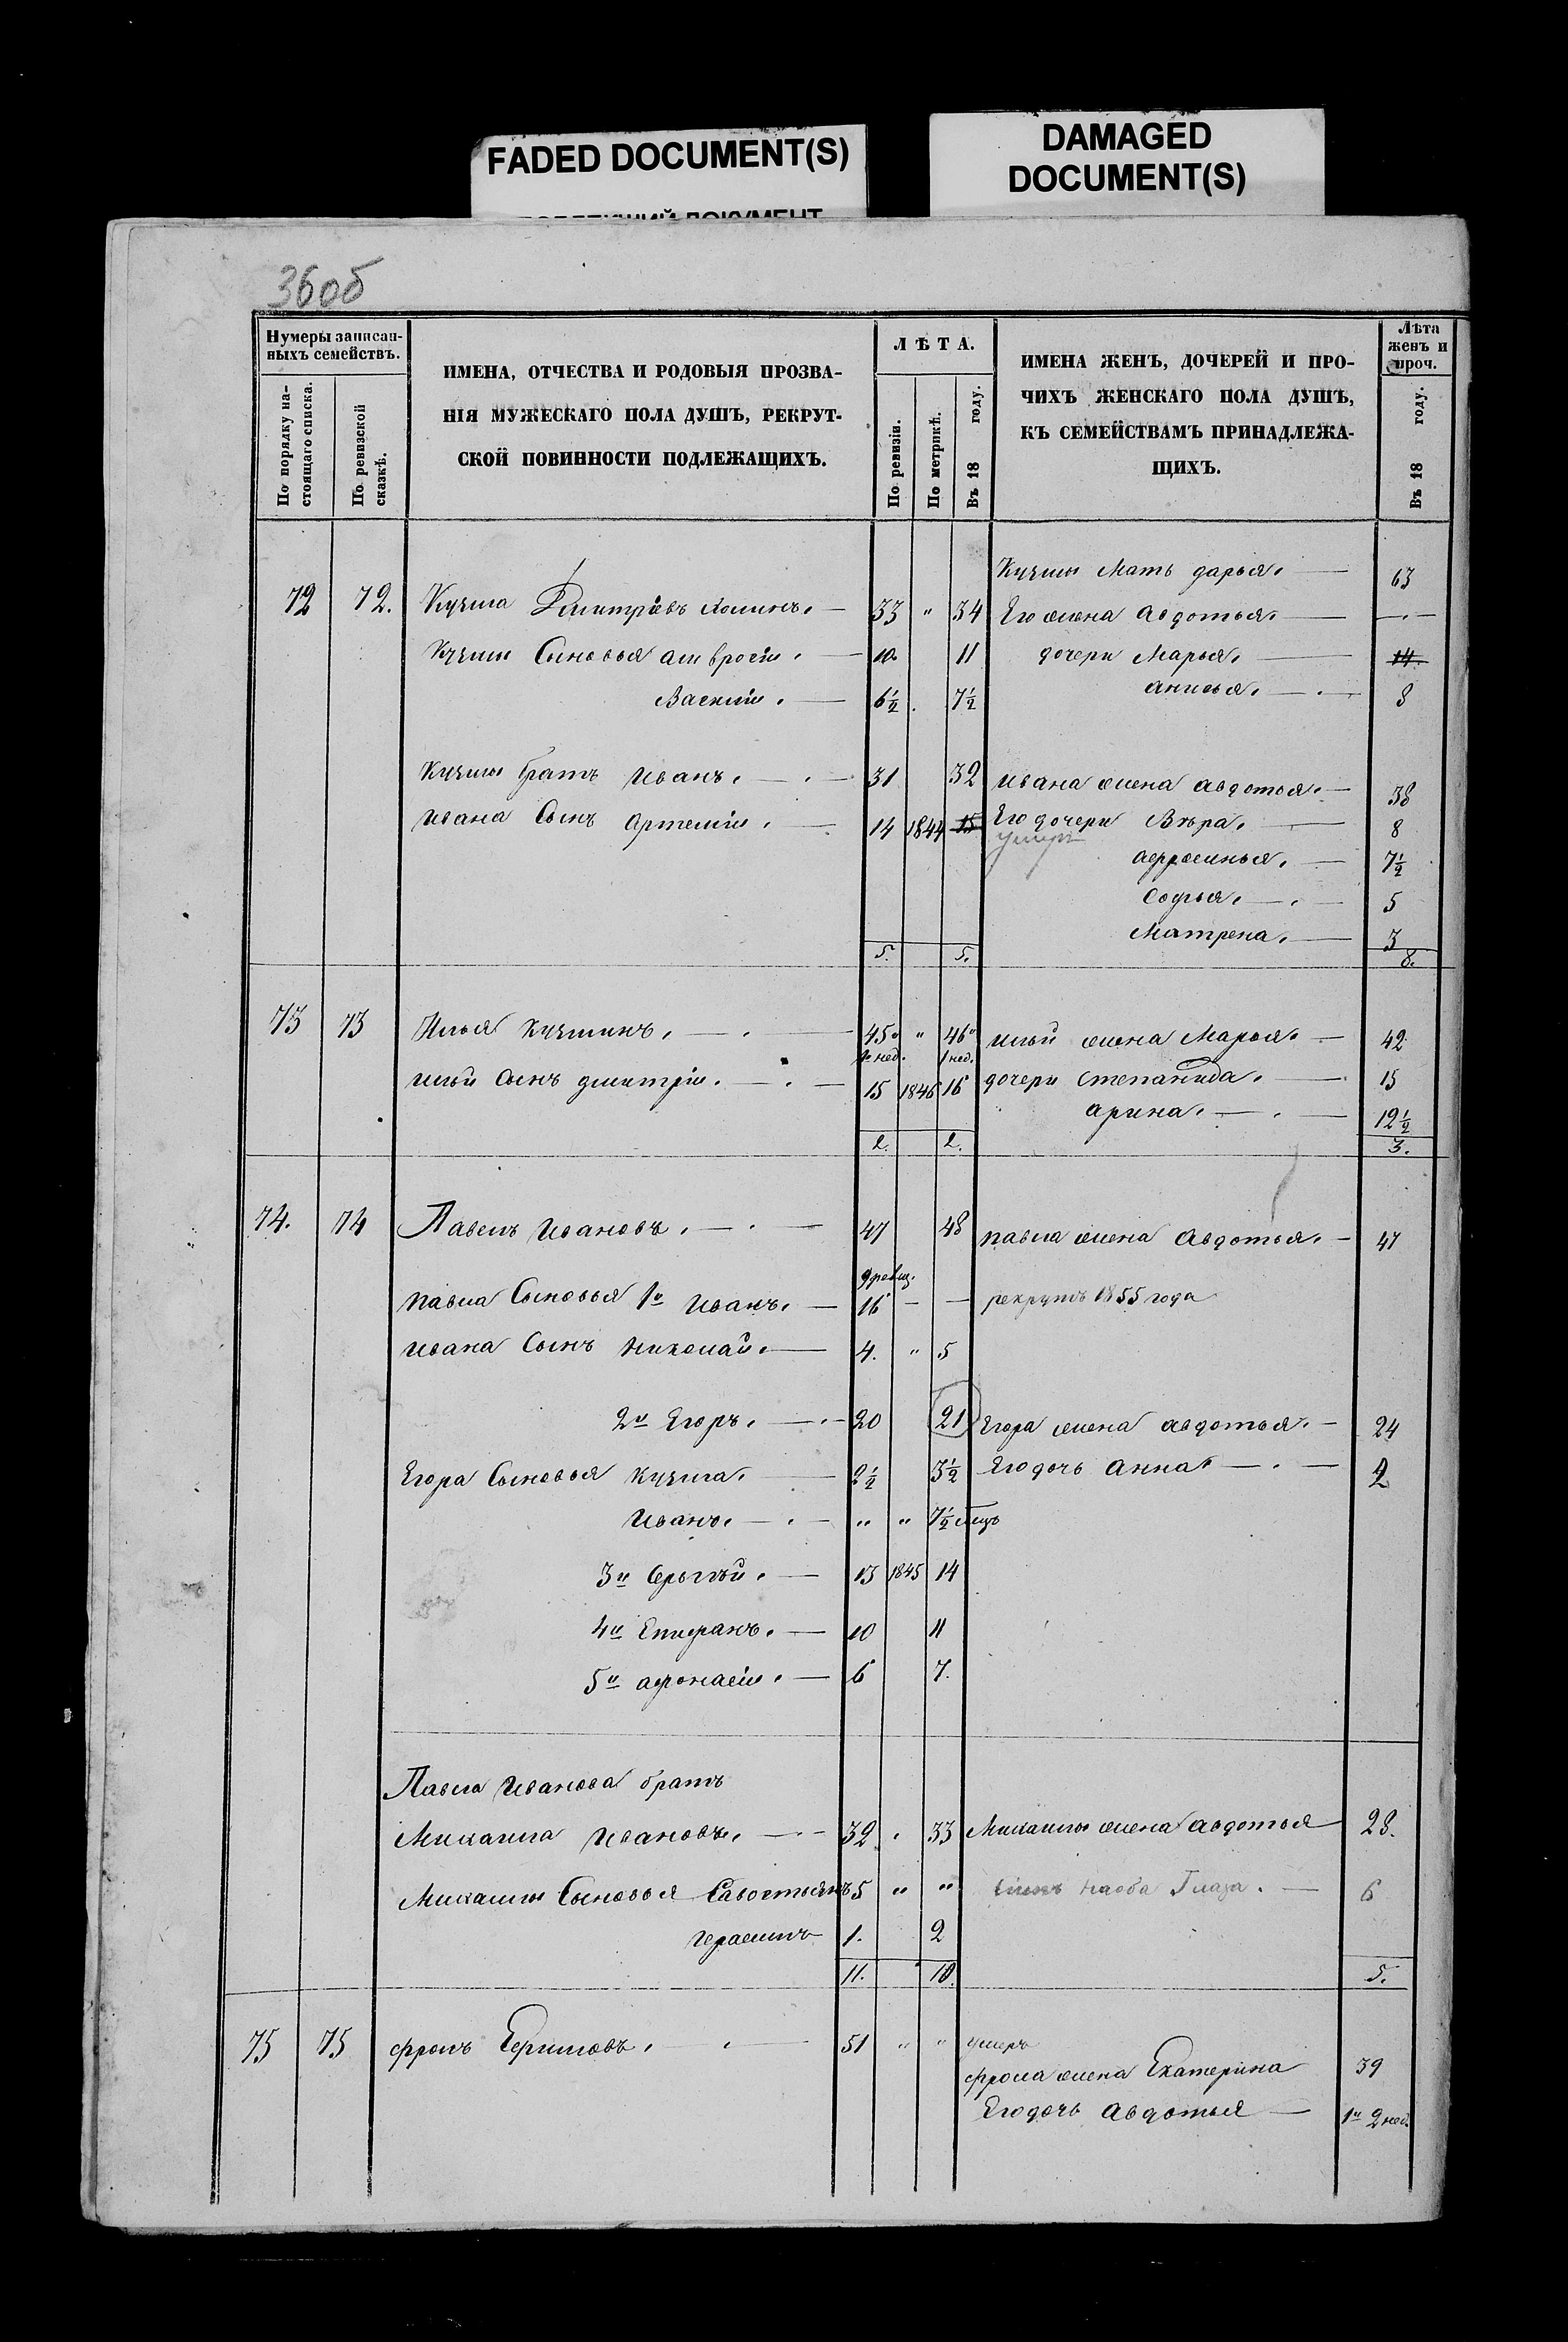 FADED DOCUMENT(S)
DAMAGED
DOCUMENT(S)
36об
Нумеры записан-
ныхъ семействъ.
По порядку на-
стоящаго списка.
По ревизской
сказкѣ.
ИМЕНА, ОТЧЕСТВА И РОДОВЫЯ ПРОЗВА-
НІЯ МУЖЕСКАГО ПОЛА ДУШЪ, РЕКРУТ-
СКОЙ ПОВИННОСТИ ПОДЛЕЖАЩИХЪ.
ЛѢТА.
По ревизіи.
По метрикѣ.
Въ 18 году.
ИМЕНА ЖЕНЪ, ДОЧЕРЕЙ И ПРО-
ЧИХЪ ЖЕНСКАГО ПОЛА ДУШЪ,
КЪ СЕМЕЙСТВАМЪ ПРИНАДЛЕЖА-
ЩИХЪ.
Лѣта
женъ и
проч.
Въ 18 году.
Кузмы Мать дарья. — 63
72 72. Кузма Дмитріевъ — 33 " 34 Его жена Авдотья. — —
Кузмы Сыновья амвросій. — 10 11 дочери Марья. — 14
Василій. — 6½ 7½ анисья. — 8
Кузмы братъ Иванъ. — 31 32 ивана жена авдотья. — 38
Ивана Сынъ Артемій. — 14 1844 15 Его дочери Вѣра. — 8
умеръ
афросинья. — 7½
Софья. — 5
Матрена. — 3
5. 5. 8.
73 73 Илья Кузминъ. — 45 " 46 ильи жена Марья. — 42
1 нед.
Ильи Сынъ дмитрій. — 15 1846 16 дочери Степанида. — 15
арина. — 12½
2. 2. 3.
74. 74 Павелъ Ивановъ. — 47 48 павла жена Авдотья. — 47
9 ревиз.
павла Сыновья 1й Иванъ. — 16 — — рекрутъ 1855 года
ивана Сынъ Николай. — 4. " 5
2й Егоръ. — 20 21 Егора жена авдотья. — 24
Егора Сыновья Кузма. — 2½ 3½ Его дочь Анна — 2
Иванъ. — " " 7½ мцъ
3й Сергѣй. — 13 1845 14
4й Епифанъ. — 10 11
5й афонасій. — 6 7.
Павла Иванова братъ
Михаила Ивановъ. — 32 " 33 Михаилы жена авдотья 28.
Михаилы Сыновья Савостьянъ 5 " " глаза. — 6
Герасимъ 1. 2
11. 10. 5.
75 75 фролъ — 51 " " умеръ
фрола жена Екатерина 39
Его дочь Авдотья — 1й 2 нед.